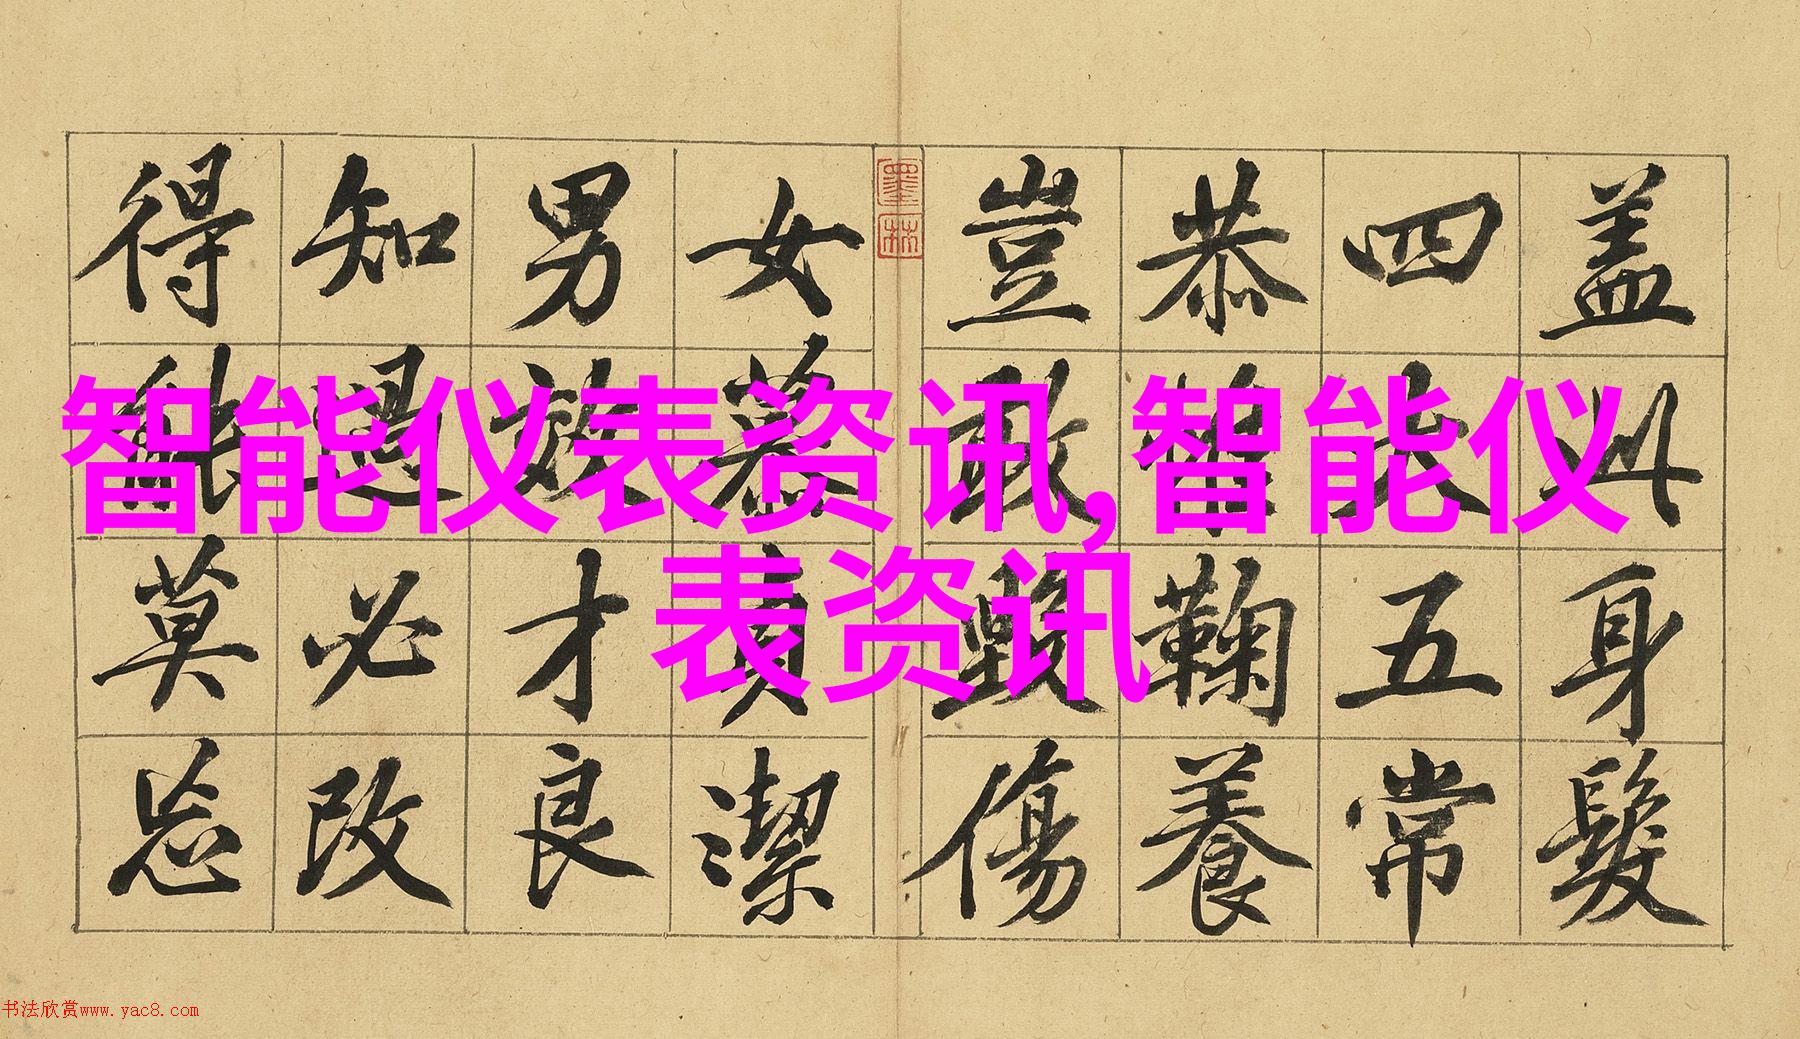 盖此身髮
四大五常
恭惟鞠養
豈敢毀傷
墨林
女慕貞潔
男效才良
知過必改
得能莫忘
智能仪表资讯,智能仪
表资讯
书法欣赏www.yac8.com